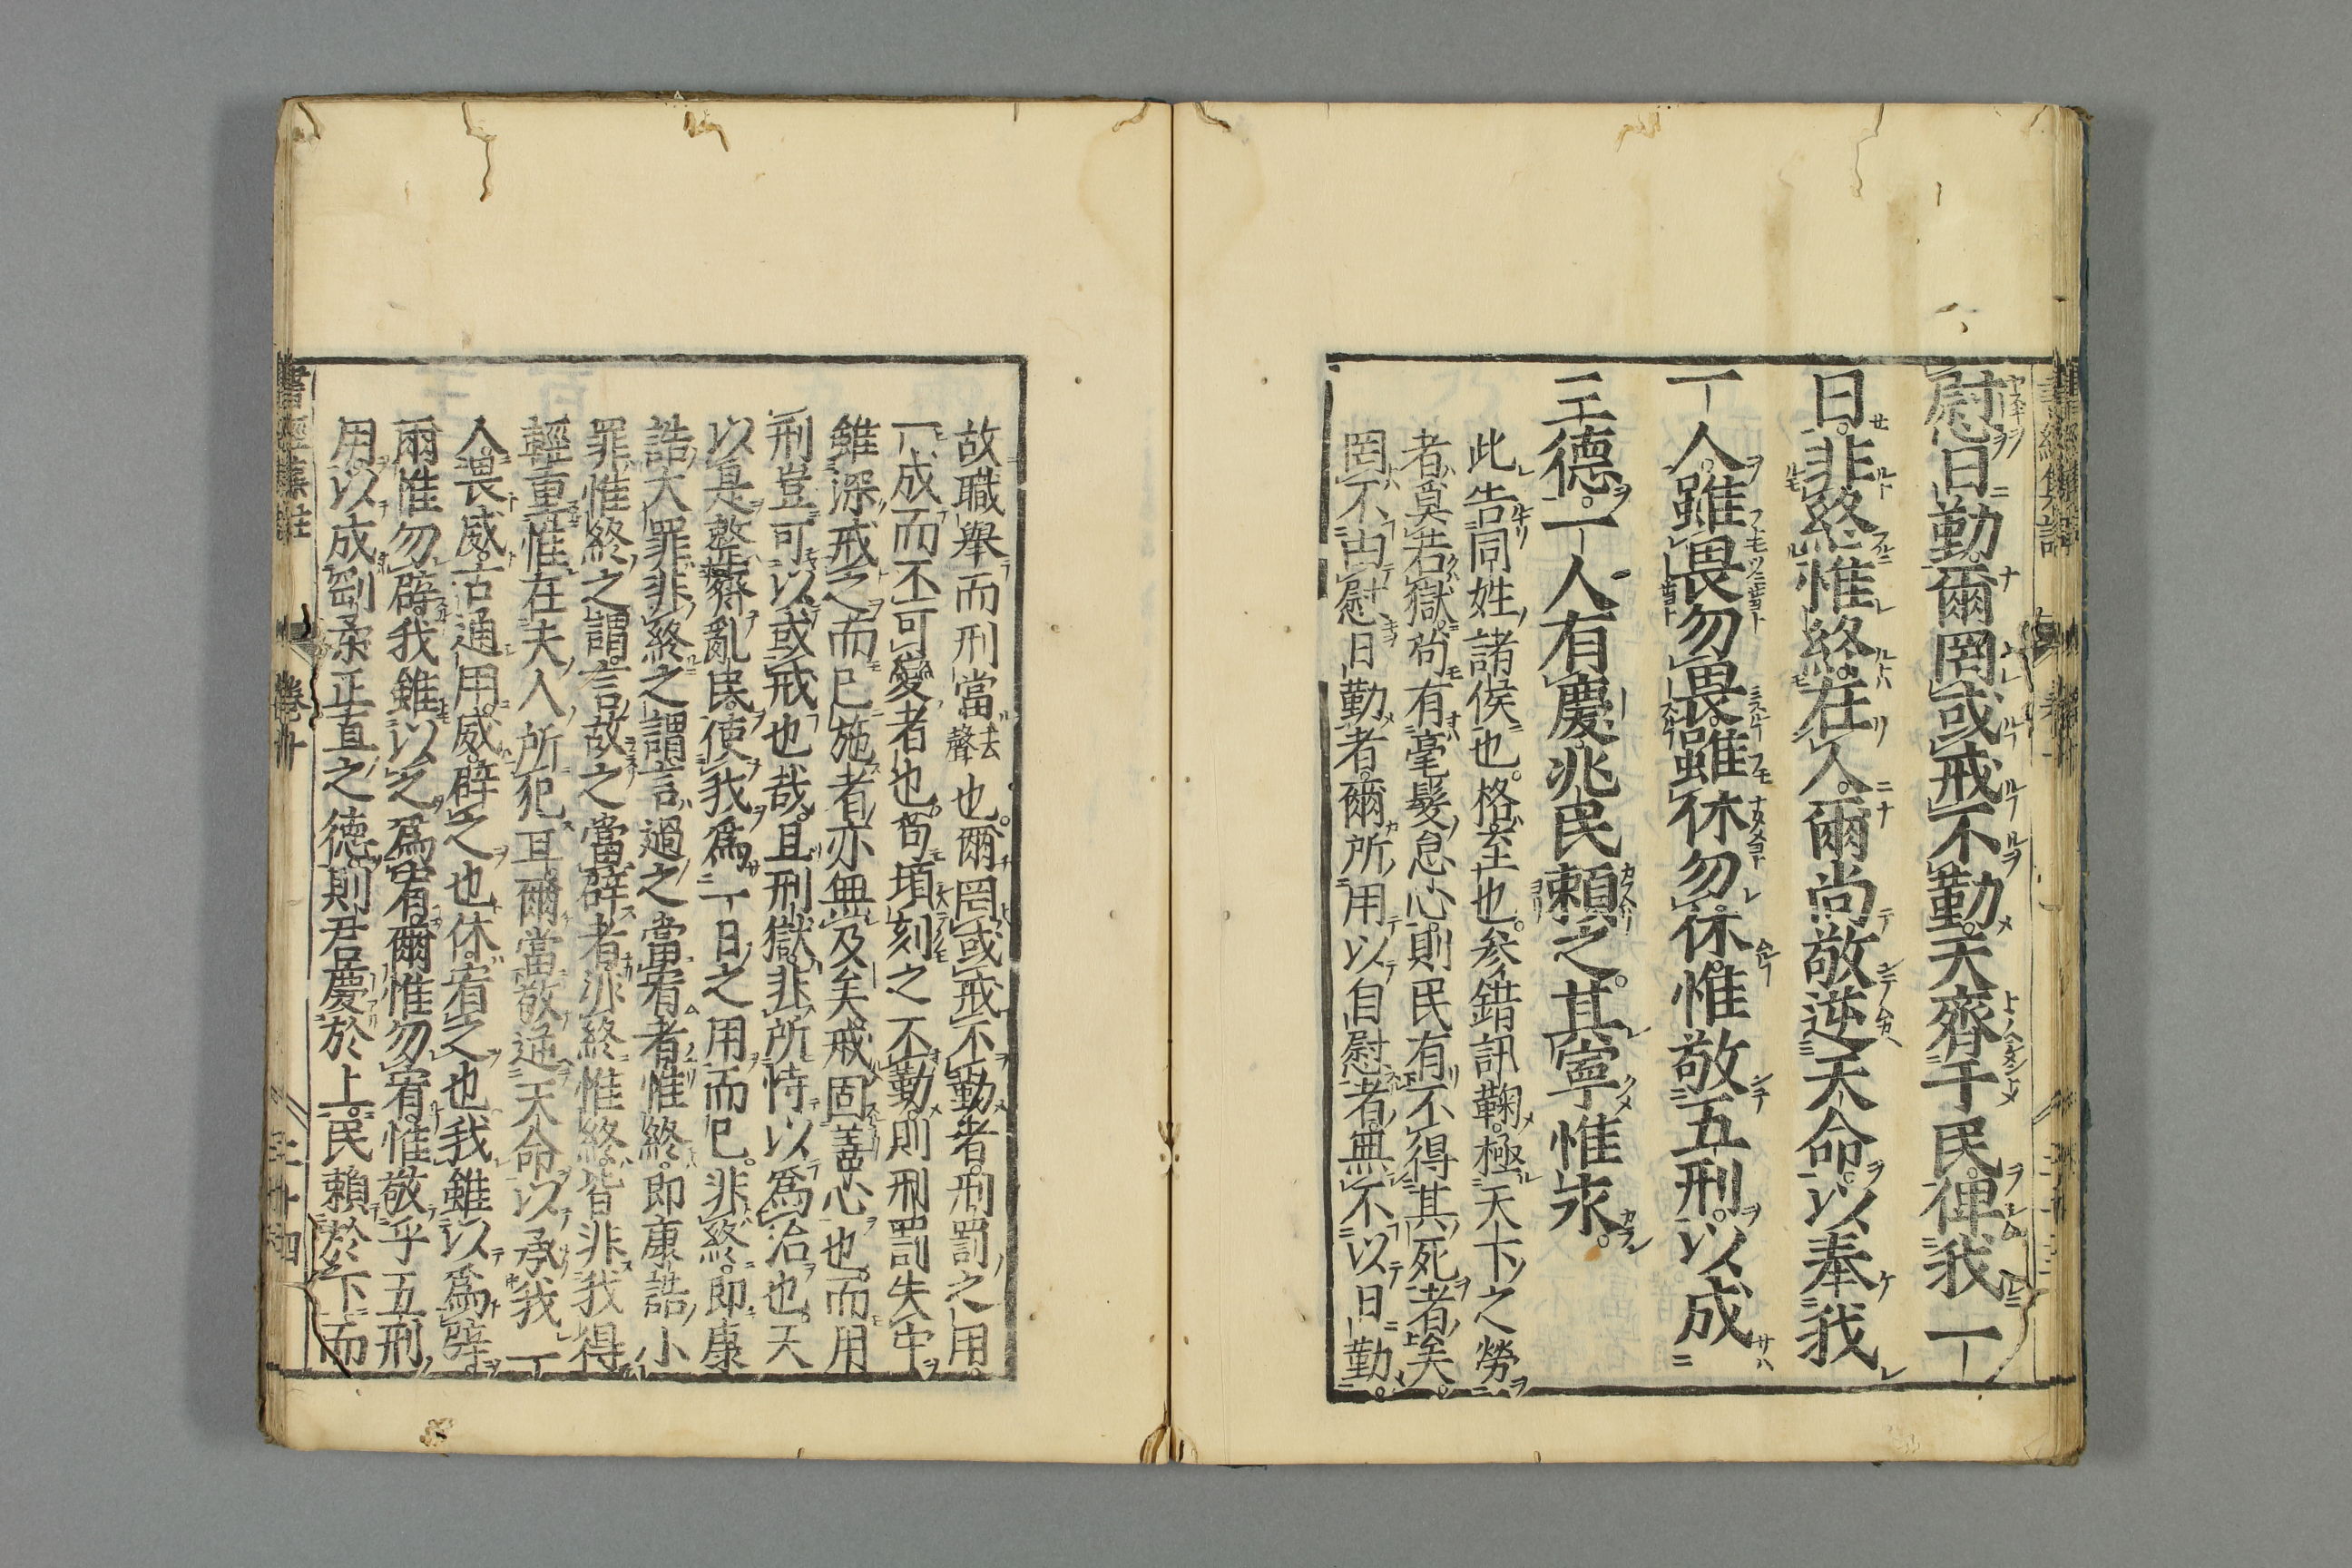 慰日勤。爾罔或戒不勤。天齊于民。俾我一
日。非終惟終。在人。爾尚敬逆天命。以奉我
一人。雖畏勿畏。雖休勿休。惟敬五刑。以成
三德。一人有慶。兆民賴之。其寧惟永。
此告同姓諸侯也。格至也。参錯訊鞠。極天下之勞
者。莫若獄。苟有毫髮怠心。則民有不得其死者矣。
罔不由慰日勤者。爾所用以自慰者。無不以日勤。
故職舉而刑當去聲也。爾罔或戒不勤者。刑罰之用。
一成而不可變者也。苟頃刻之不勤。則刑罰失中。
雖深戒之。而已施者。亦無及矣。戒固善心也。而用
刑豈可以或戒也哉。且刑獄。非所恃以爲治也。天
以是整齊亂民。使我爲一日之用而已。非終。即康
誥大罪非終之謂。言過之當宥者。惟終。即康誥小
罪惟終之謂。言故之當辟者。非終惟終。皆非我得
輕重。惟在夫人所犯耳。爾當敬逆天命。以承我一
人。畏威。古通用。威。辟之也。休。宥之也。我雖以爲辟。
爾惟勿辟。我雖以之爲宥。爾惟勿宥。惟敬乎五刑
用。以成剛柔正直之德。則君慶於上。民賴於下。而
書經集註 卷十 三十四